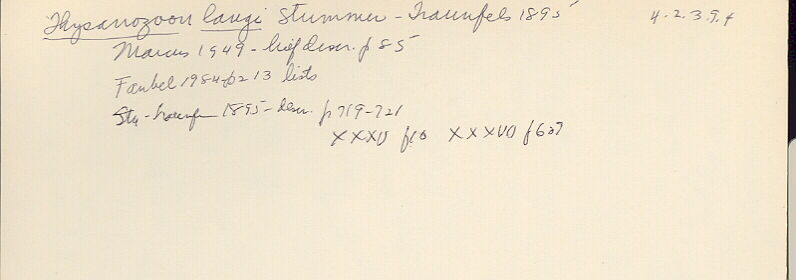 Thysanozoon langi Stummer-Traunfels 1895 4.2.3.9.4
Marcus 1949 - brief descr. p 85
Faubel 1984 p 213 lists
Stu-Traunf 1895 - descr. p 719-721
XXXV f10 XXXVII f 6